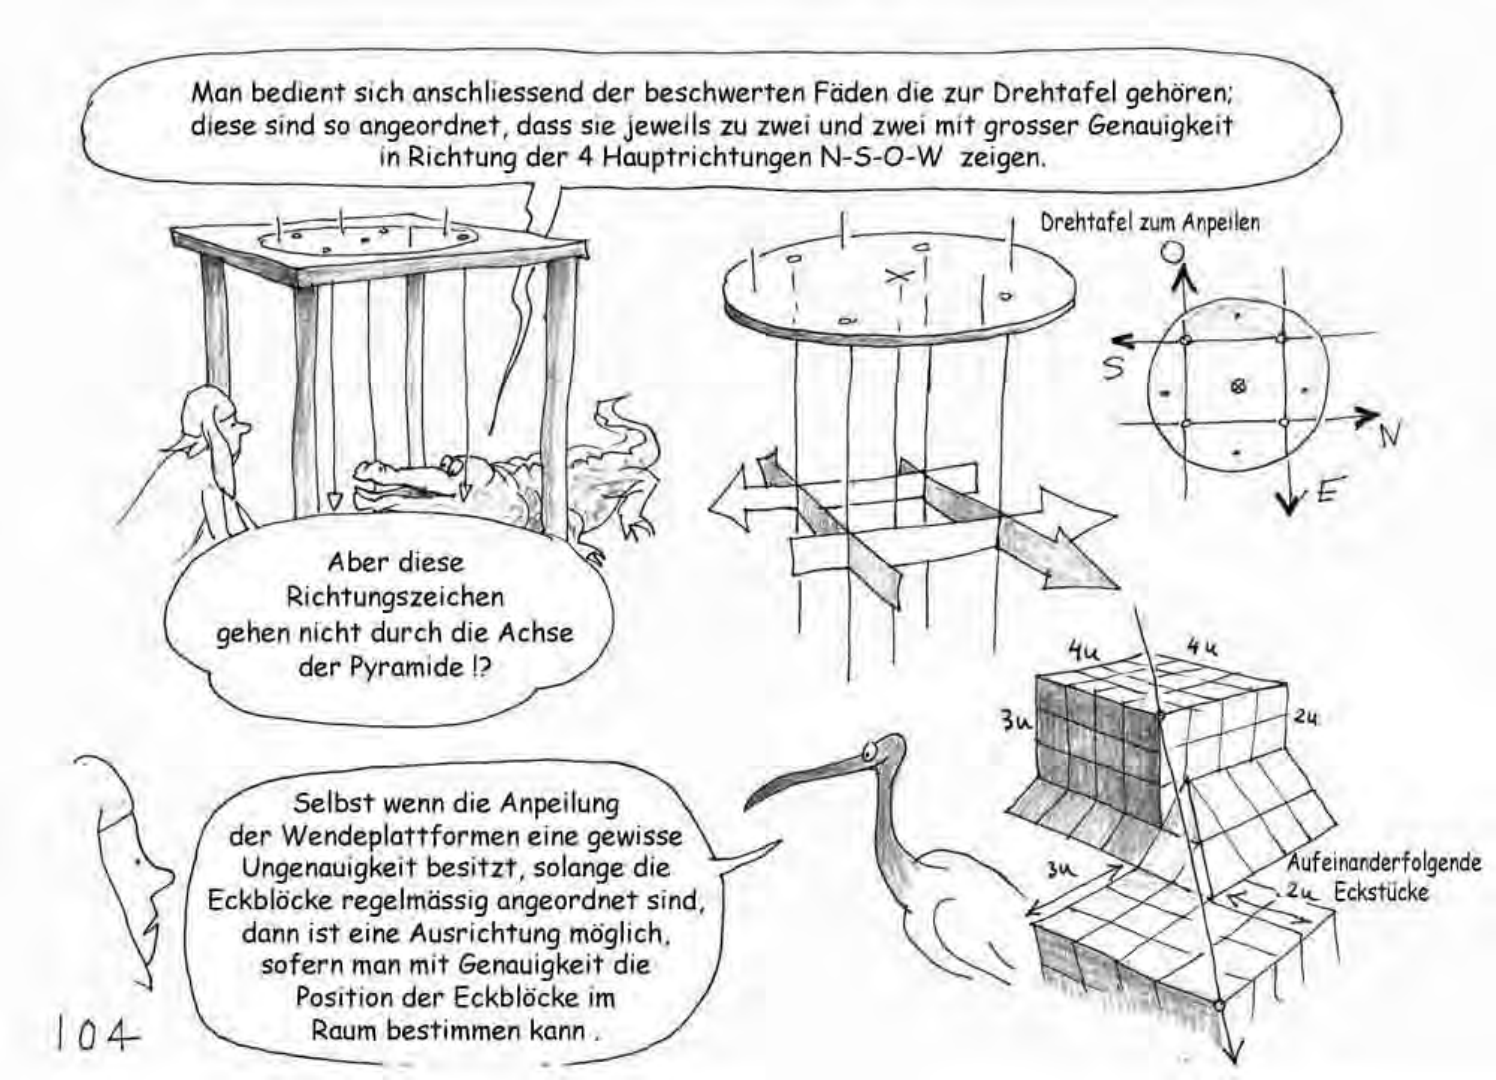 Man bedient sich anschliessend der beschwerten Fäden die zur Drehtafel gehören;
diese sind so angeordnet, dass sie jeweils zu zwei und zwei mit grosser Genauigkeit
in Richtung der 4 Hauptrichtungen N-S-O-W zeigen.
Drehtafel zum Anpeilen
O
S
N
E
Aber diese
Richtungszeichen
gehen nicht durch die Achse
der Pyramide !?
4u
4u
3u
2u
3u
Aufeinanderfolgende
2u Eckstücke
Selbst wenn die Anpeilung
der Wendeplattformen eine gewisse
Ungenauigkeit besitzt, solange die
Eckblöcke regelmässig angeordnet sind,
dann ist eine Ausrichtung möglich,
sofern man mit Genauigkeit die
Position der Eckblöcke im
Raum bestimmen kann .
104